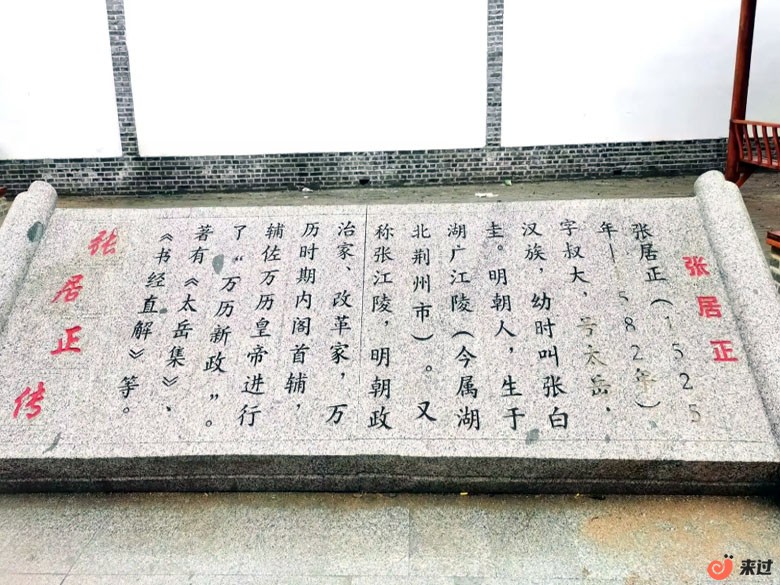 张居正
张居正（1525
年—1582年）
字叔大，号太岳，
汉族，幼时叫张白
圭。明朝人，生于
湖广江陵（今属湖
北荆州市）。又
称张江陵，明朝政
治家、改革家，万
历时期内阁首辅，
辅佐万历皇帝进行
了“万历新政”。
著有《太岳集》、
《书经直解》等。
张居正传
来过